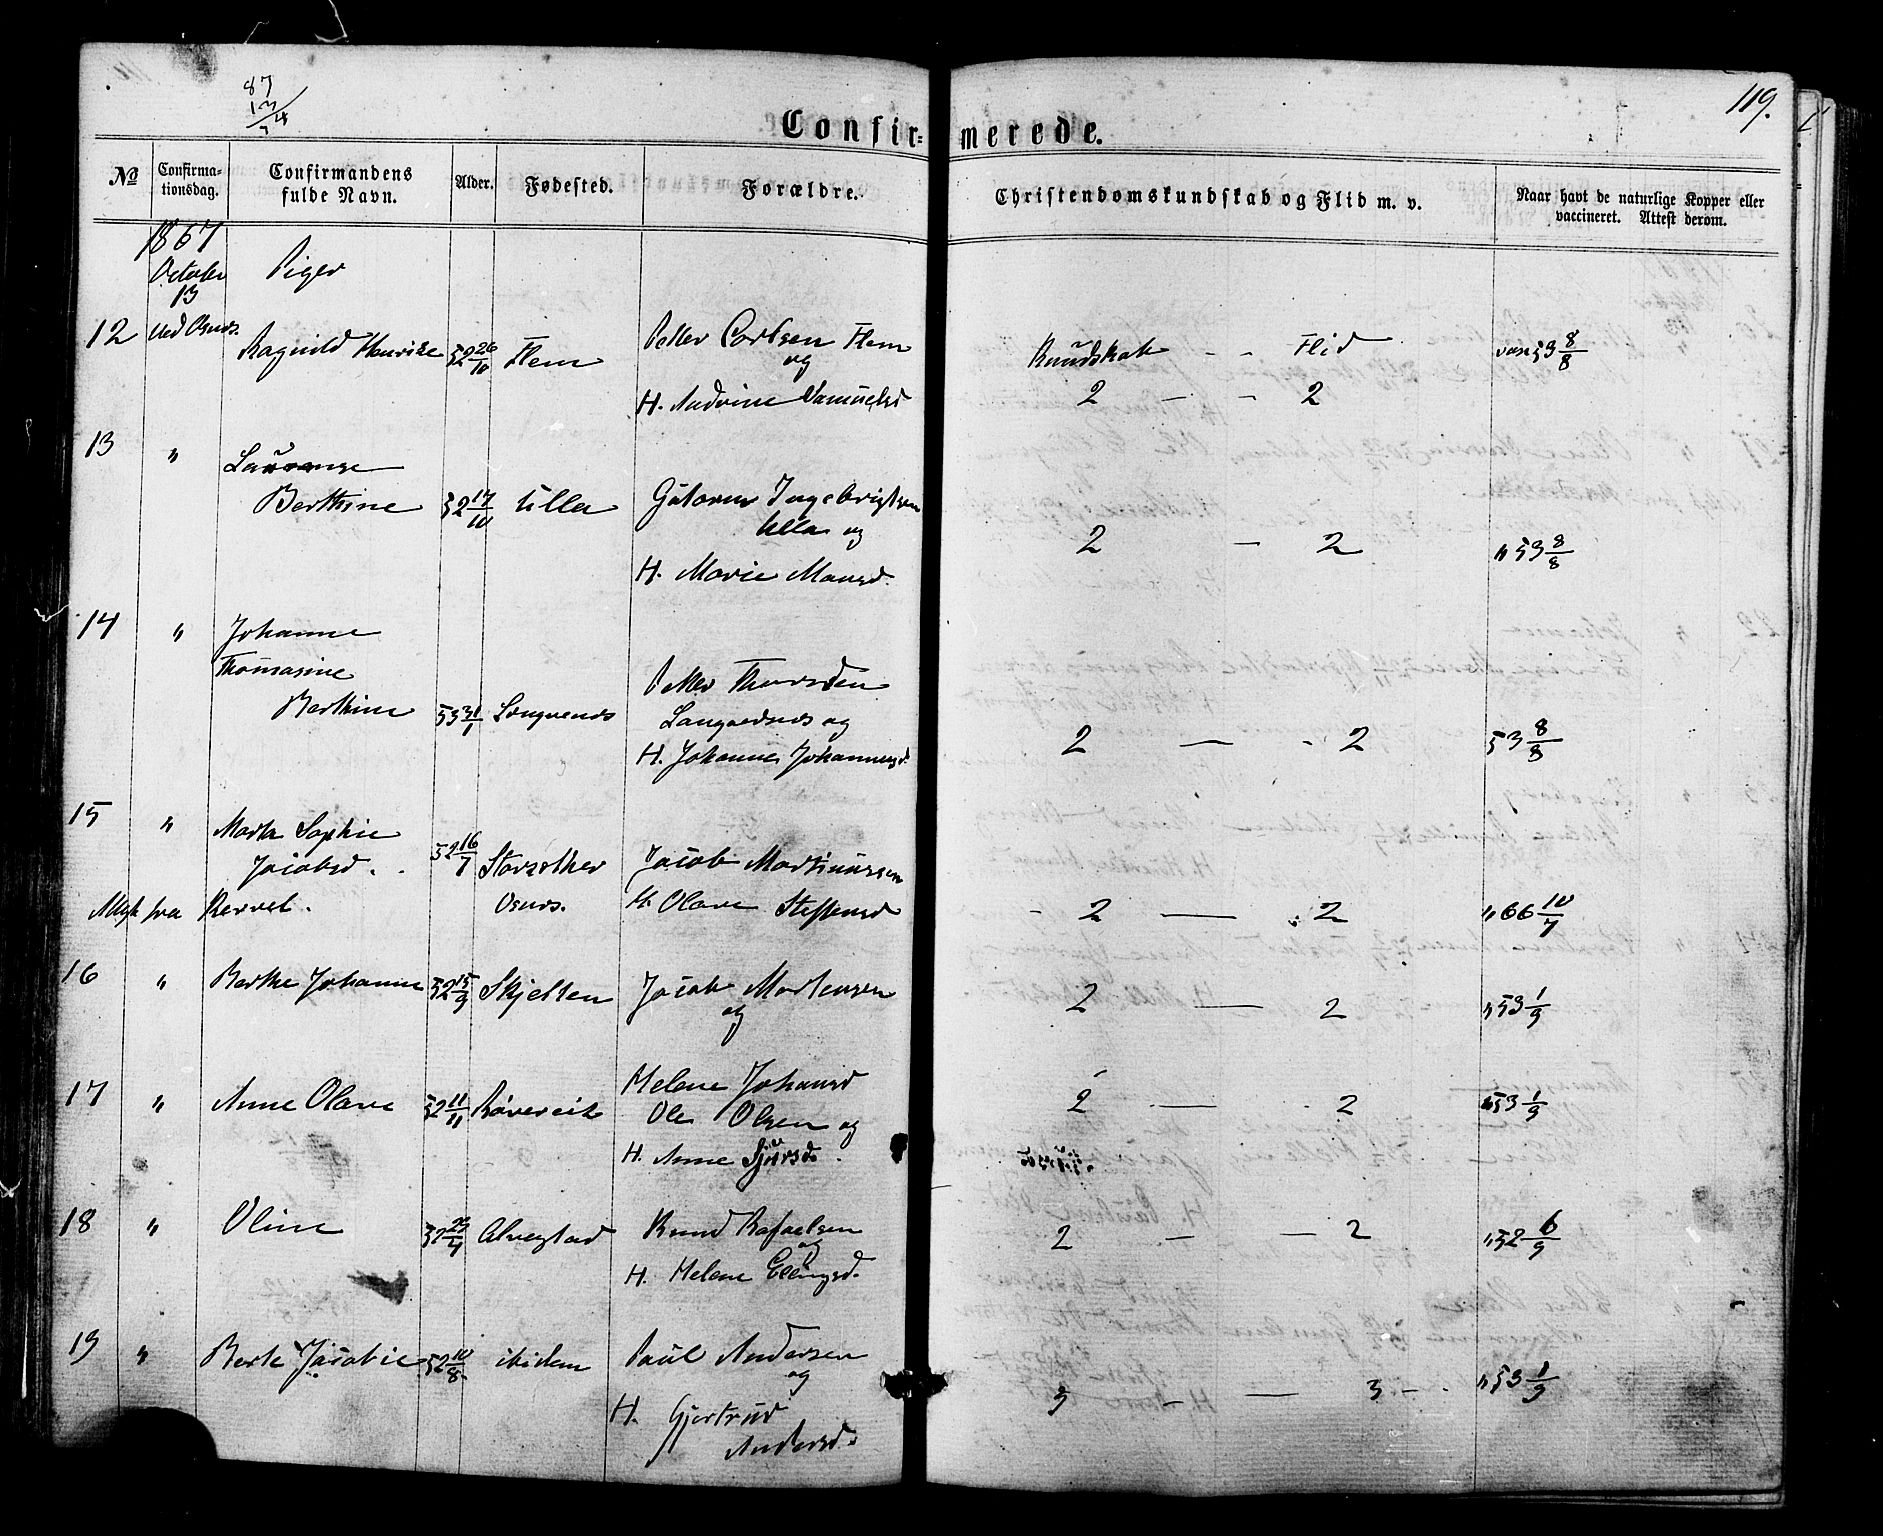 87
13
119.
Confir= merede.
No
Confirma=
tionsdag.
Confirmandens
fulde Navn.
Alder.
Fødested.
Forældre.
Christendomskundskab og Flid m. v.
Naar havt de naturlige Kopper eller
vaccineret. Attest derom.
1867
October
13
Piger
12 Ved Osnæs. Ragnild Henrike 52 26/10 Flem Petter Carlsen Flem
og
H. Andrine Samuelsd
Kundskab - - Flid vac 53 8/8
2 - - 2
13 " Laurense
Berthine 52 17/10 Ulla Gutorm Ingebrigtsen
Ulla og
H. Marie Monsd.
2 - 2 " 53 8/8
14 " Johanne
Thomasine
Berthine 53 31/1 Longvenæs Petter Thorsden
Langvednæs og
H. Johanne Johannesd.
2 - - 2 53 8/8
15 " Marte Sophie
Jacobsd. 52 16/7 Jacob Martinussen
Attest fra Revret. Osnæs. H. Olave Steffensd
- 2 - 2 " 66 10/7
16 " Berthe Johanne 52 15/9 Skjelten Jacob Mortensen
og
2 - 2 " 53 1/9
Helene Johansd
17 " Anne Olave 52 11/11 Røvereit Ole Olsen og
H. Anne Sjursd.
2 - 2 " 53 1/9
18 " Oline 52 23/4 Alvestad Knud Rafaelsen
og
H. Helene Ellingsd.
2 - - 2 " 52 6/9
19 " Berte Jacobie 52 10/8 ibidem Paul Andersen
og
H. Gjertrud
Andersd.
3 - - 3 - " 53 1/9